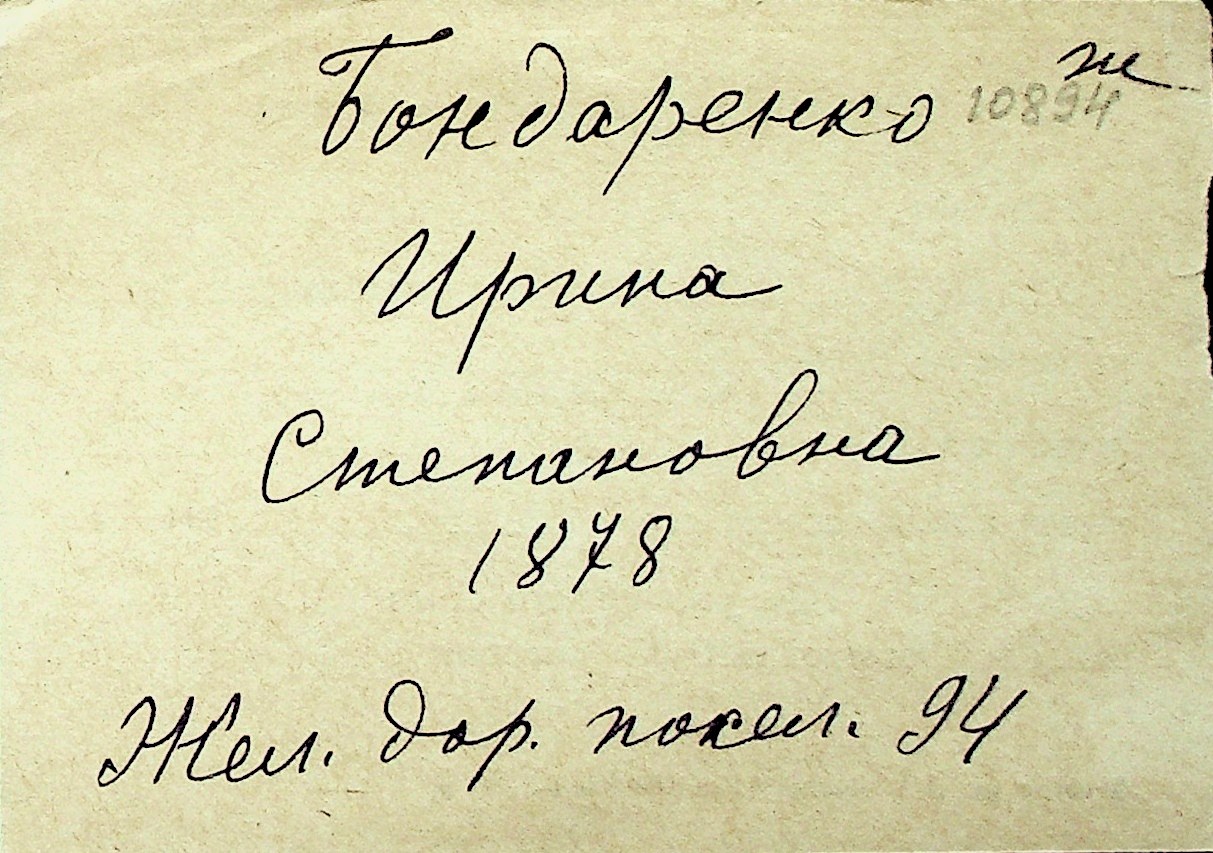 ж
Бондаренко 10894
Ирина
Степановна
1878
Жел. дор. посел. 94